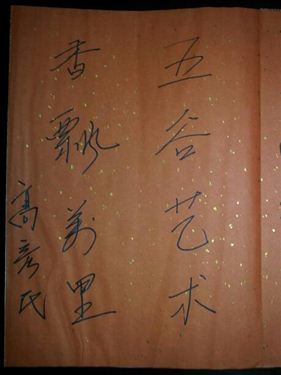 五谷艺术
香飘万里
高彦民